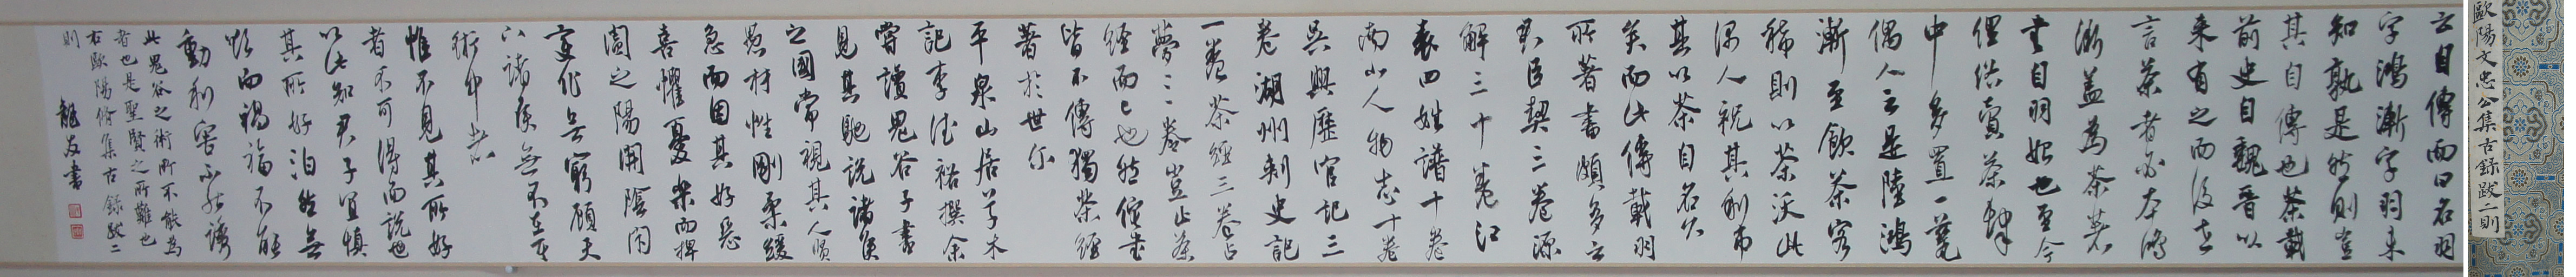 歐陽文忠公集古錄跋二則
云自傳而曰名羽
字鴻漸字羽未
知孰是然則豈
其自傳也茶載
前史自魏晉以
来有之而後世
言茶者必本鴻
漸蓋為茶著
書自羽始也至今
俚俗賣茶肆
中多置一瓷
偶人云是陸鴻
漸至飲茶客
稀則以茶沃此
偶人祝其利市
其以茶自名久
矣而此傳載羽
所著書頗多云
君臣契三卷源
解三十卷江
表四姓譜十卷
南北人物志十卷
吳興歷官記三
卷湖州刺史記
一卷茶經三卷占
夢三卷豈止茶
經而已也然佗書
皆不傳獨茶經
著於世尔
平泉山居草木
記李德裕撰余
嘗讀鬼谷子書
見其馳說諸侯
之國常視其人賢
愚材性剛柔緩
急而因其好惡
喜懼憂樂而捭
闔之陽開陰閉
變化無窮顧天
下諸侯無不在其
術中者
惟不見其所好
者不可得而說也
以此知君子宜慎
其所好泊然無
欲而禍福不能
動利害不能誘
此鬼谷之術所不能為
者也是聖賢之所難也
右歐陽脩集古錄跋二
則
龍友書